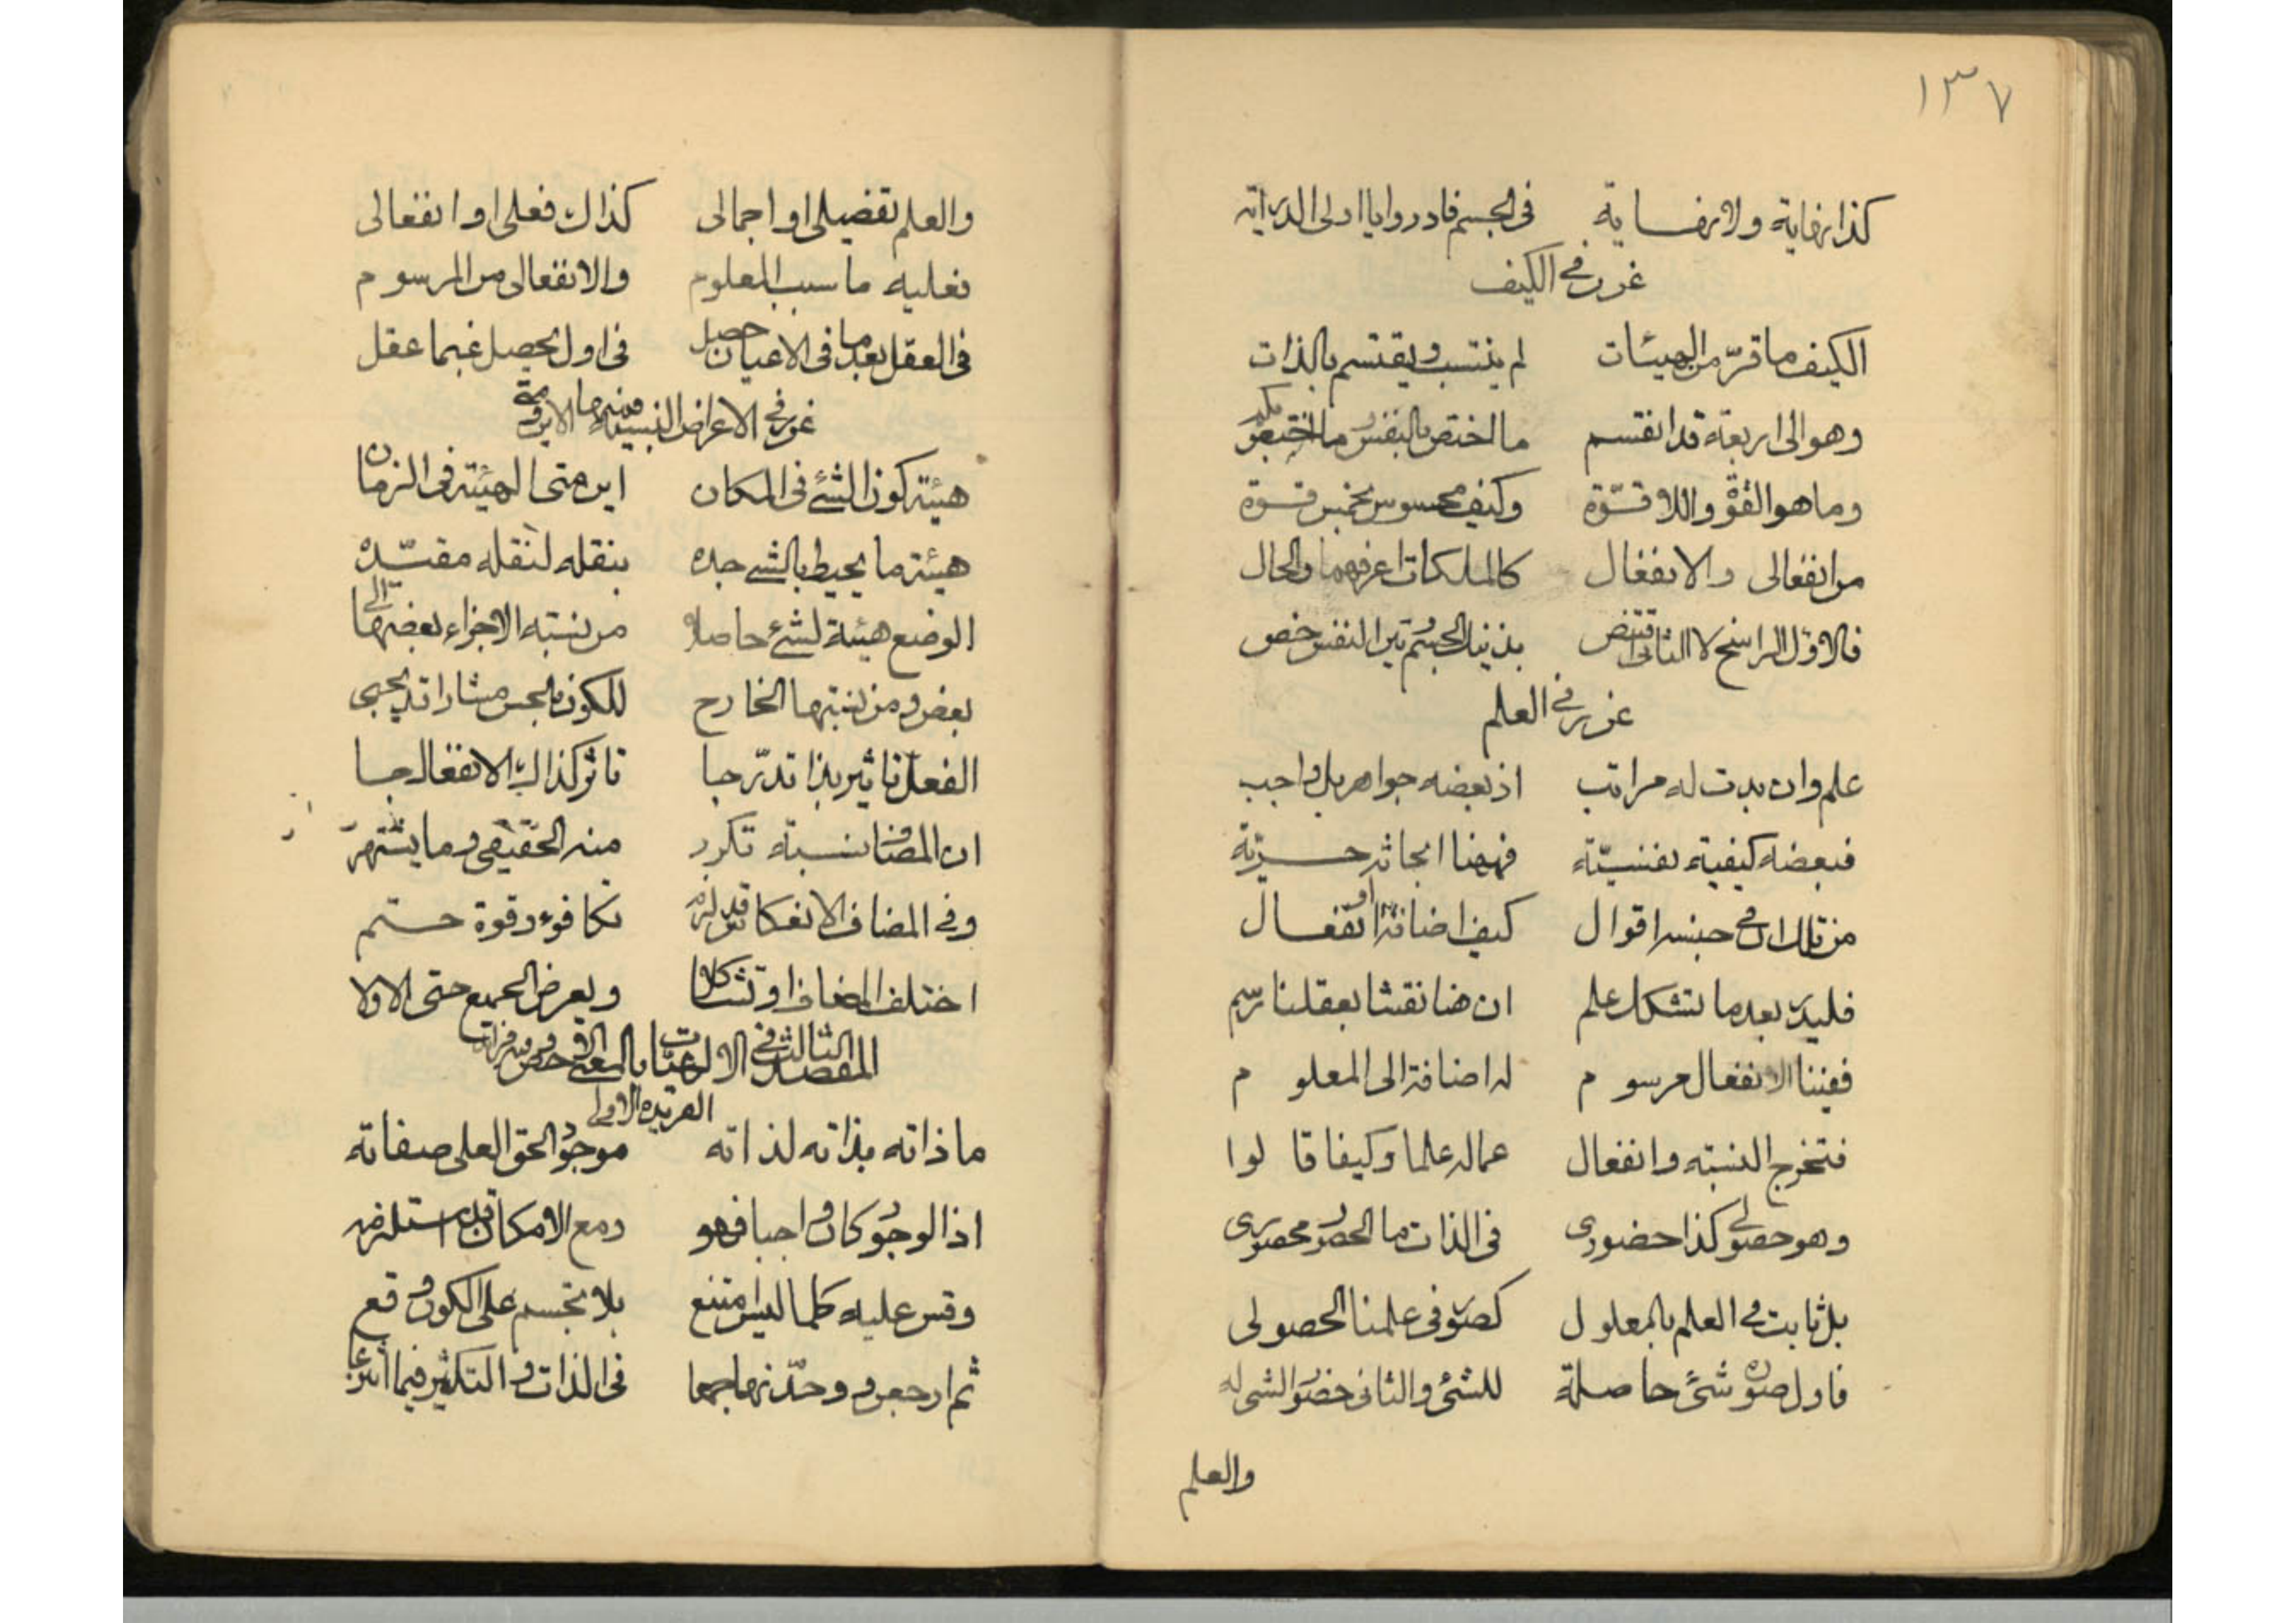 ١٣٧
كذا نهاية ولا نهاية في الجسم فادروا يا اولى الدراية
غرر في الكيف
الكيف ما قرّ من الهيئات لم ينتسب ويقتسم بالذات
وهو الى اربعة قد انقسم ما اختص بالنفس وما اختص بكم
وما هو القوّة واللا قوّة وكيف محسوس بخمس قوة
من انفعالى والانفعال كالملكات اعرفهما والحال
فالاوّل الراسخ لا الثانى بذينك الجسم تين النفس خص
غرر في العلم
علم وان بدت له مراتب اذ بعضه جواهر بل واجب
فبعضه كيفية نفسيّة فههنا ابحاثه حريّة
من تلك ان في جنسه اقوال كيف اضافة او انفعال
فليدر بعد ما تشكك علم ان هنا نقشا بعقلنا رسم
ففيننا الانفعال مرسوم له اضافة الى المعلوم
فتخرج النسبة وانفعال عما له علما وكيفا قالوا
وهو حصولى كذا حضورى في الذات ما الحضور محصورى
بل ثابت في العلم بالمعلول كصور في علمنا الحصولى
فاول صورة شئ حاصلة للشئ والثانى حضور الشى له
والعلم
والعلم تفصيلى او اجمالى كذاك فعلى او انفعالى
فعليه ما سبب المعلوم والانفعالى من المرسوم
في العقل بعد ما في الاعيان حصل في اول يحصل غبما عقل
غرر في الاعراض النسبية فمنها الاين ومتى
هيئة كون الشئ في المكان اين متى الهيئة في الزمان
هيئة ما يحيط بالشئ جده بنقله لنقله مقيّده
الوضع هيئة لشئ حاصلا من نسبة الاجزاء بعضها الى
بعض ومن نسبتها الخارج للكون بالحس مشارا تد يجى
الفعل تاثير بذا تدرّجا تاثر كذاك الانفعال جا
ان المضاف نسبة تكرر منه الحقيقى وما يشتهر
وفي المضاف الانعكاس قد لزم تكافوء وقوة حتم
اختلف المضاف او تشاكلا ويعرض الجميع حتى الاولا
المقصد الثالث في الالهيات بالمعنى الاخص
الفريدة الاولى
ما ذاته بذاته لذاته موجود الحق العلى صفاته
اذا الوجود كان واجبا فهو ومع الامكان قد استلزمه
وقس عليه كلما ليس امتنع بلا تجسم على الكون وقع
ثم ارجعن ووحدنها جمعا في الذات والتكثير فيما انتزعا